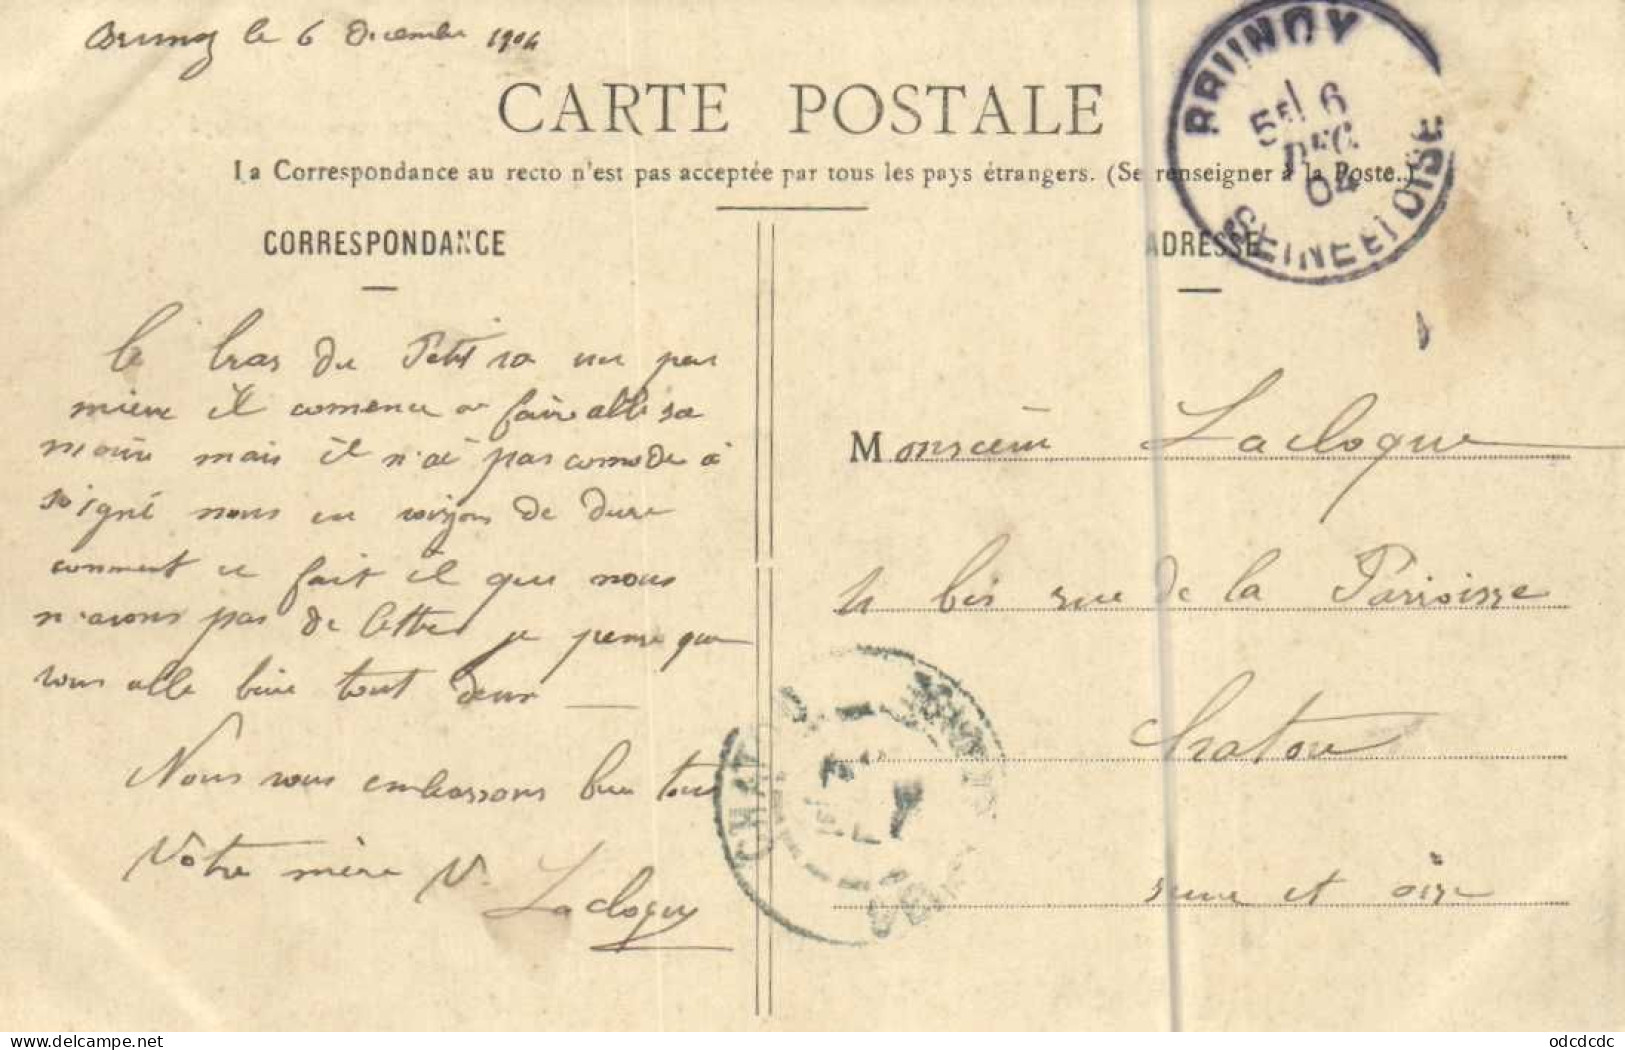 Brunoy le 6 Decembre 1904
CARTE POSTALE
La Correspondance au recto n'est pas acceptée par tous les pays étrangers. (Se renseigner à la Poste.)
CORRESPONDANCE
le bras du Petit va un peu
mieux il comence a faire alle sa
main mais il n'ai pas comode à
soigné nous en voiyons de dure
comment ce fait il que nous
n'avons pas de lettre je pense que
vous alle bien tout deux
Nous vous embrassons bien tous
Votre mère V.
Lacloque
ADRESSE
Monsieur Lacloque
11 bis rue de la Parroisse
Chatou
seine et oise
BRUNOY
5E 6
DEC.
04
SEINE ET OISE
CHATOU
SEINE
www.delcampe.net
odcdcdc